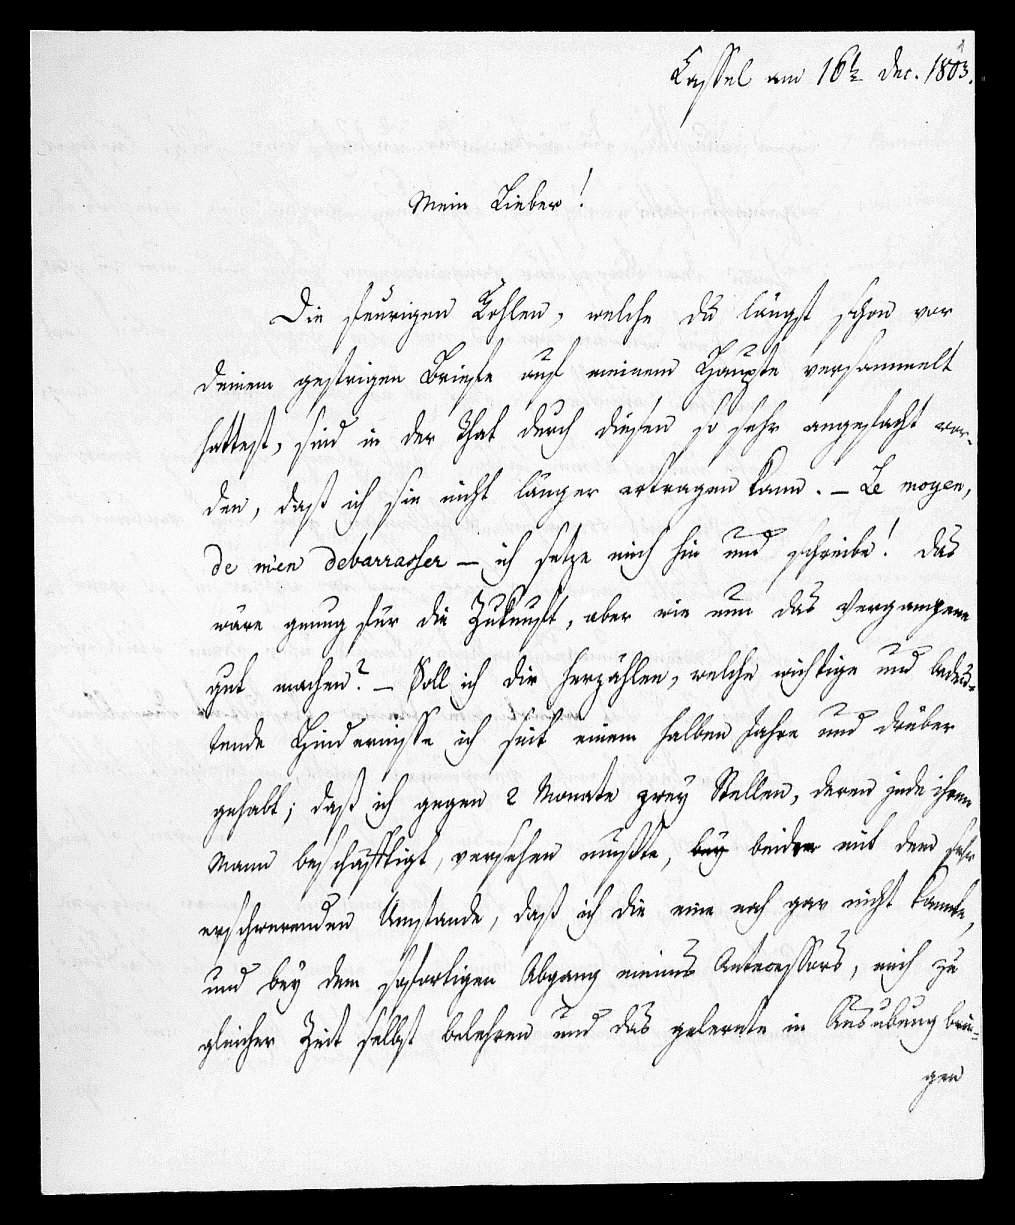 Cassel am 16t Dec. 1803.
Mein Lieber!
Die feurigen Kohlen, welche du längst schon vor
deinem gestrigen Briefe auf meinem Haupte versammelt
hattest, sind in der That durch diesen so sehr angefacht wor-
den, daß ich sie nicht länger ertragen kann. – Le moyen,
de m'en debarrasser – ich setze mich hin und schreibe! Das
wäre genug für die Zukunft, aber wie nun das Vergangene
gut machen? – Soll ich dir herzählen, welche wichtige und bedeu-
tende Hindernisse ich seit einem halben Jahre und drüber
gehabt; daß ich gegen 2 Monate zwey Stellen, deren jede ihren
Mann beschäfftigt, versehen mußte, bey beiden mit dem sehr
erschwerenden Umstande, daß ich die eine noch gar nicht kannte,
und bey dem sofortigen Abgang meines Antecessors, mich zu
gleicher Zeit selbst belehren und das gelernte in Ausübung brin-
gen